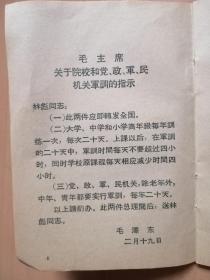 毛主席
关于院校和党、政、軍、民
机关軍訓的指示
林彪同志：
(一)此两件应即轉发全国。
(二)大学、中学和小学高年級每年訓
练一次，每次二十天。上課以后，在軍訓
的二十天中，軍訓时間每天不要超过四小
时，同时学校原課程每天相应减少时間四
小时。
(三)党、政、軍、民机关，除老年外，
中年、青年都要实行軍訓，每年二十天。
以上請酌办。此两件总理閱后，送林
彪同志。
毛澤东
二月十九日
4